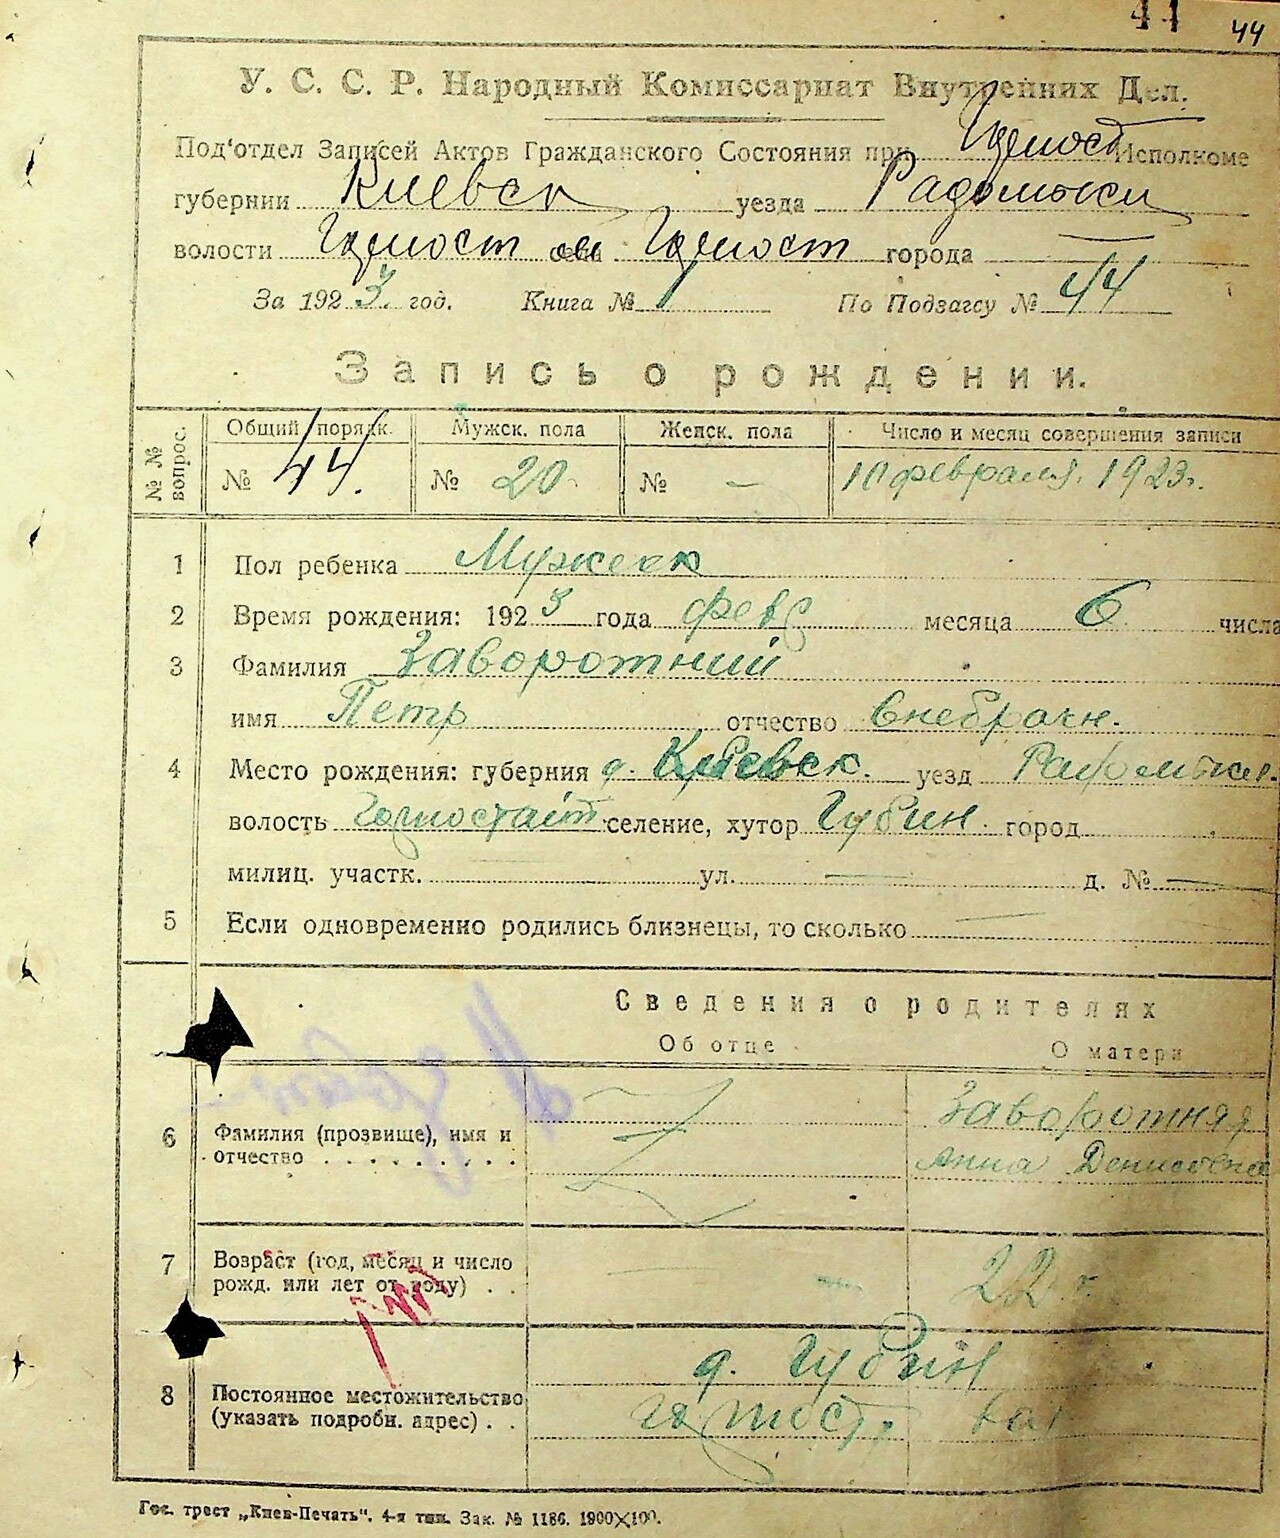 44 44
У. С. С. Р. Народный Комиссариат Внутренних Дел.
Под'отдел Записей Актов Гражданского Состояния при Исполкоме
губернии Киевск уезда Радомысл
волости Горност села Горност города —
За 1923 год. Книга № 1 По Подзагсу № 44
Запись о рождении.
№ № вопрос. Общий порядк. Мужск. пола Женск. пола Число и месяц совершения записи
№ 44. № 20 № — 10 февраля. 1923г.
1 Пол ребенка Мужеск
2 Время рождения: 1923 года февр месяца 6 числа
3 Фамилия Заворотний
имя Петр отчество внебрачн.
4 Место рождения: губерния Киевск. уезд Радомысл.
волость Горностайп селение, хутор Губин город
милиц. участк. ул. — д. № —
5 Если одновременно родились близнецы, то сколько —
Сведения о родителях
Об отце О матери
6 Фамилия (прозвище), имя и отчество . . . . . . . . . Заворотняя
Анна Денисовна
7 Возраст (год, месяц и число рожд. или лет от роду) . . — 22 г.
8 Постоянное местожительство (указать подробн. адрес) . . д. Губин
Горност. вол
Гос. трест „Киев-Печать". 4-я тип. Зак. № 1186. 1900×100.